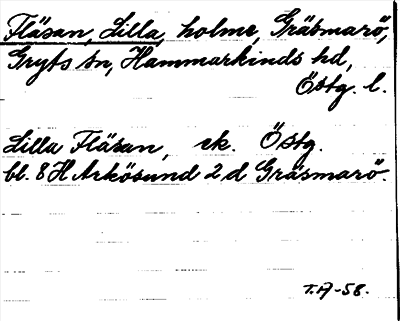 Fläsan, Lilla, holme, Gräsmarö,
Gryts sn, Hammarkinds hd,
Östg. l.
Lilla Fläsan, ek. Östg.
bl. 8 H Arkösund 2 d Gräsmarö.
T.A-58.